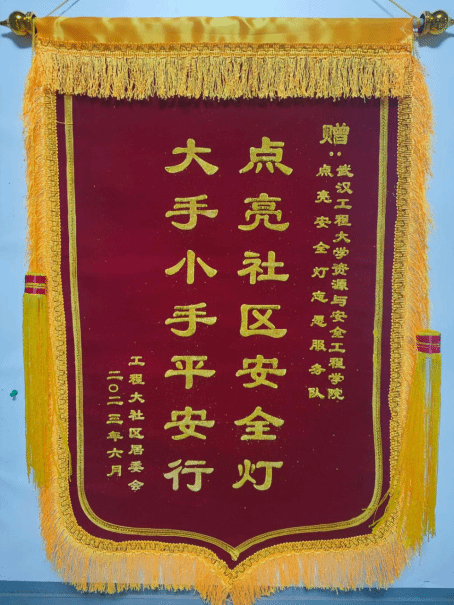 赠：
武汉工程大学资源与安全工程学院
点亮安全灯志愿服务队
点亮社区安全灯
大手小手平安行
工程大社区居委会
二〇二三年六月